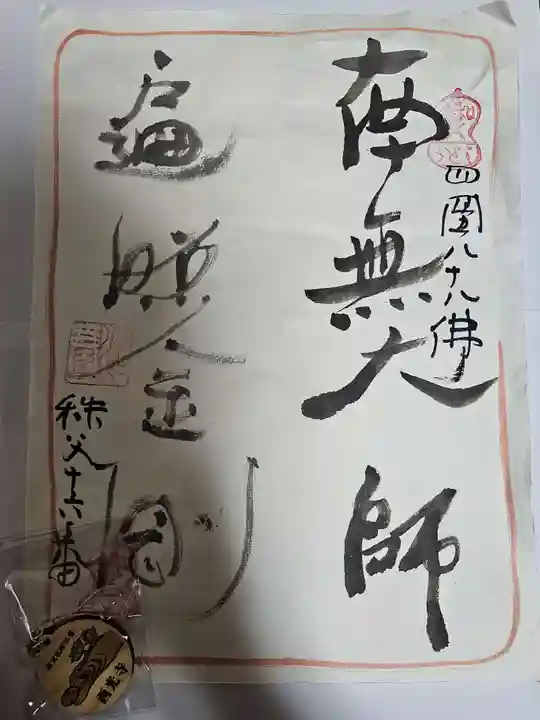 四國八十八佛
南無大師
遍照金剛
秩父十六番
西光寺